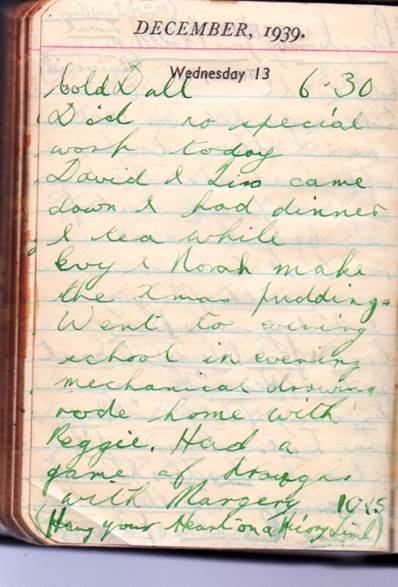 DECEMBER, 1939.
Wednesday 13
Cold Dall 6-30
Did no special
work today
David & Lin came
down & had dinner
& tea while
Evy & Norah make
the Xmas puddings
Went to evining
school in evening
mechanical drawing
rode home with
Reggie. Had a
game of draughs
with Margery 10.45
(Hang your Heart on a Hicory Limb)